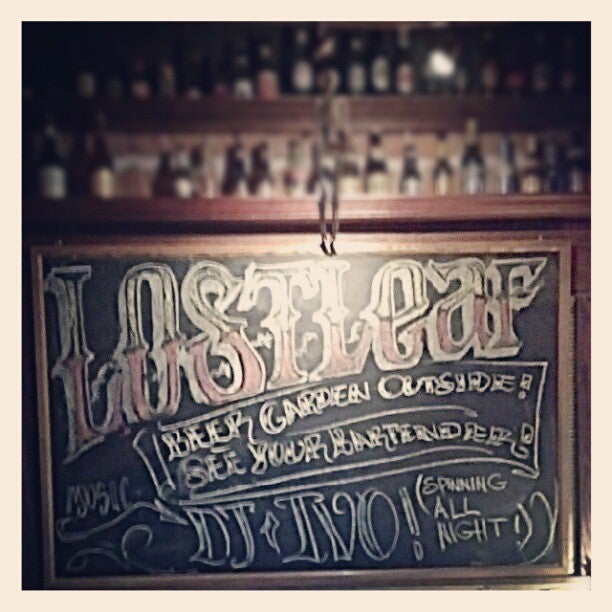 LOSTLeaF
BEER GARDEN OUTSIDE!
SEE YOUR BARTENDEER!
MUSIC
DJ • TVO! (SPINNING
ALL
NIGHT!)